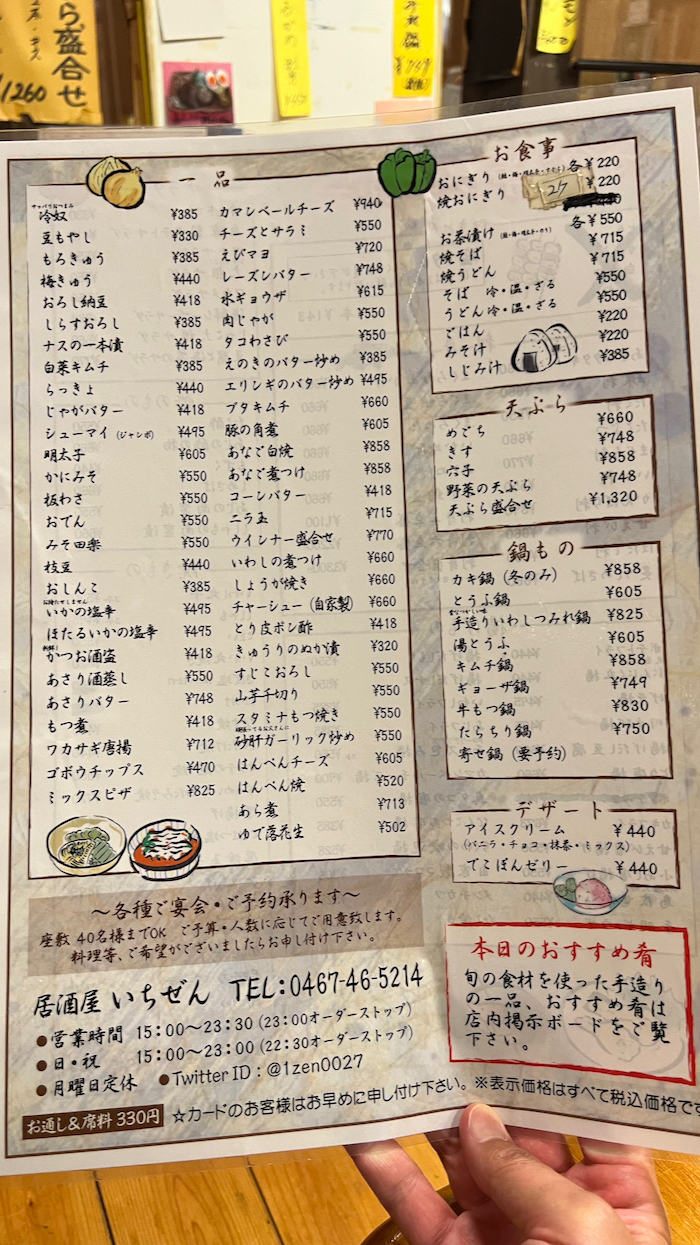 ら盛合せ
¥1260
一品
サッパリおつまみ
冷奴 ¥385
豆もやし ¥330
もろきゅう ¥385
梅きゅう ¥440
おろし納豆 ¥418
しらすおろし ¥385
ナスの一本漬 ¥418
白菜キムチ ¥385
らっきょ ¥440
じゃがバター ¥418
シューマイ(ジャンボ) ¥495
明太子 ¥605
かにみそ ¥550
板わさ ¥550
おでん ¥550
みそ田楽 ¥550
枝豆 ¥440
おしんこ ¥385
お待たせしません
いかの塩辛 ¥495
ほたるいかの塩辛 ¥495
かつお酒盗 ¥418
あさり酒蒸し ¥550
あさりバター ¥748
もつ煮 ¥418
ワカサギ唐揚 ¥712
ゴボウチップス ¥470
ミックスピザ ¥825
カマンベールチーズ ¥940
チーズとサラミ ¥550
えびマヨ ¥720
レーズンバター ¥748
水ギョウザ ¥615
肉じゃが ¥550
タコわさび ¥550
えのきのバター炒め ¥385
エリンギのバター炒め ¥495
ブタキムチ ¥660
豚の角煮 ¥605
あなご白焼 ¥858
あなご煮つけ ¥858
コーンバター ¥418
ニラ玉 ¥715
ウインナー盛合せ ¥770
いわしの煮つけ ¥660
しょうが焼き ¥660
チャーシュー(自家製) ¥660
とり皮ポン酢 ¥418
きゅうりのぬか漬 ¥320
すじこおろし ¥550
山芋千切り ¥550
スタミナもつ焼き ¥550
砂肝ガーリック炒め ¥550
はんぺんチーズ ¥605
はんぺん焼 ¥520
あら煮 ¥713
ゆで落花生 ¥502
お食事
おにぎり 各¥220
焼おにぎり 2ケ ¥220
お茶漬け 各¥550
焼そば ¥715
焼うどん ¥715
そば 冷・温・ざる ¥550
うどん冷・温・ざる ¥550
ごはん ¥220
みそ汁 ¥220
しじみ汁 ¥385
天ぷら
めごち ¥660
きす ¥748
穴子 ¥858
野菜の天ぷら ¥748
天ぷら盛合せ ¥1,320
鍋もの
カキ鍋(冬のみ) ¥858
とうふ鍋 ¥605
手造りいわしつみれ鍋 ¥825
湯とうふ ¥605
キムチ鍋 ¥858
ギョーザ鍋 ¥749
牛もつ鍋 ¥830
たらちり鍋 ¥750
寄せ鍋(要予約)
デザート
アイスクリーム ¥440
(バニラ・チョコ・抹茶・ミックス)
でこぽんゼリー ¥440
～各種ご宴会・ご予約承ります～
座敷 40名様までOK ご予算・人数に応じてご用意致します。
料理等、ご希望がございましたらお申し付け下さい。
居酒屋 いちぜん TEL:0467-46-5214
●営業時間 15:00～23:30(23:00オーダーストップ)
●日・祝 15:00～23:00(22:30オーダーストップ)
●月曜日定休 ●Twitter ID：@1zen0027
お通し&席料 330円 ☆カードのお客様はお早めに申し付け下さい。※表示価格はすべて税込価格です
本日のおすすめ肴
旬の食材を使った手造り
の一品、おすすめ肴は
店内掲示ボードをご覧
下さい。